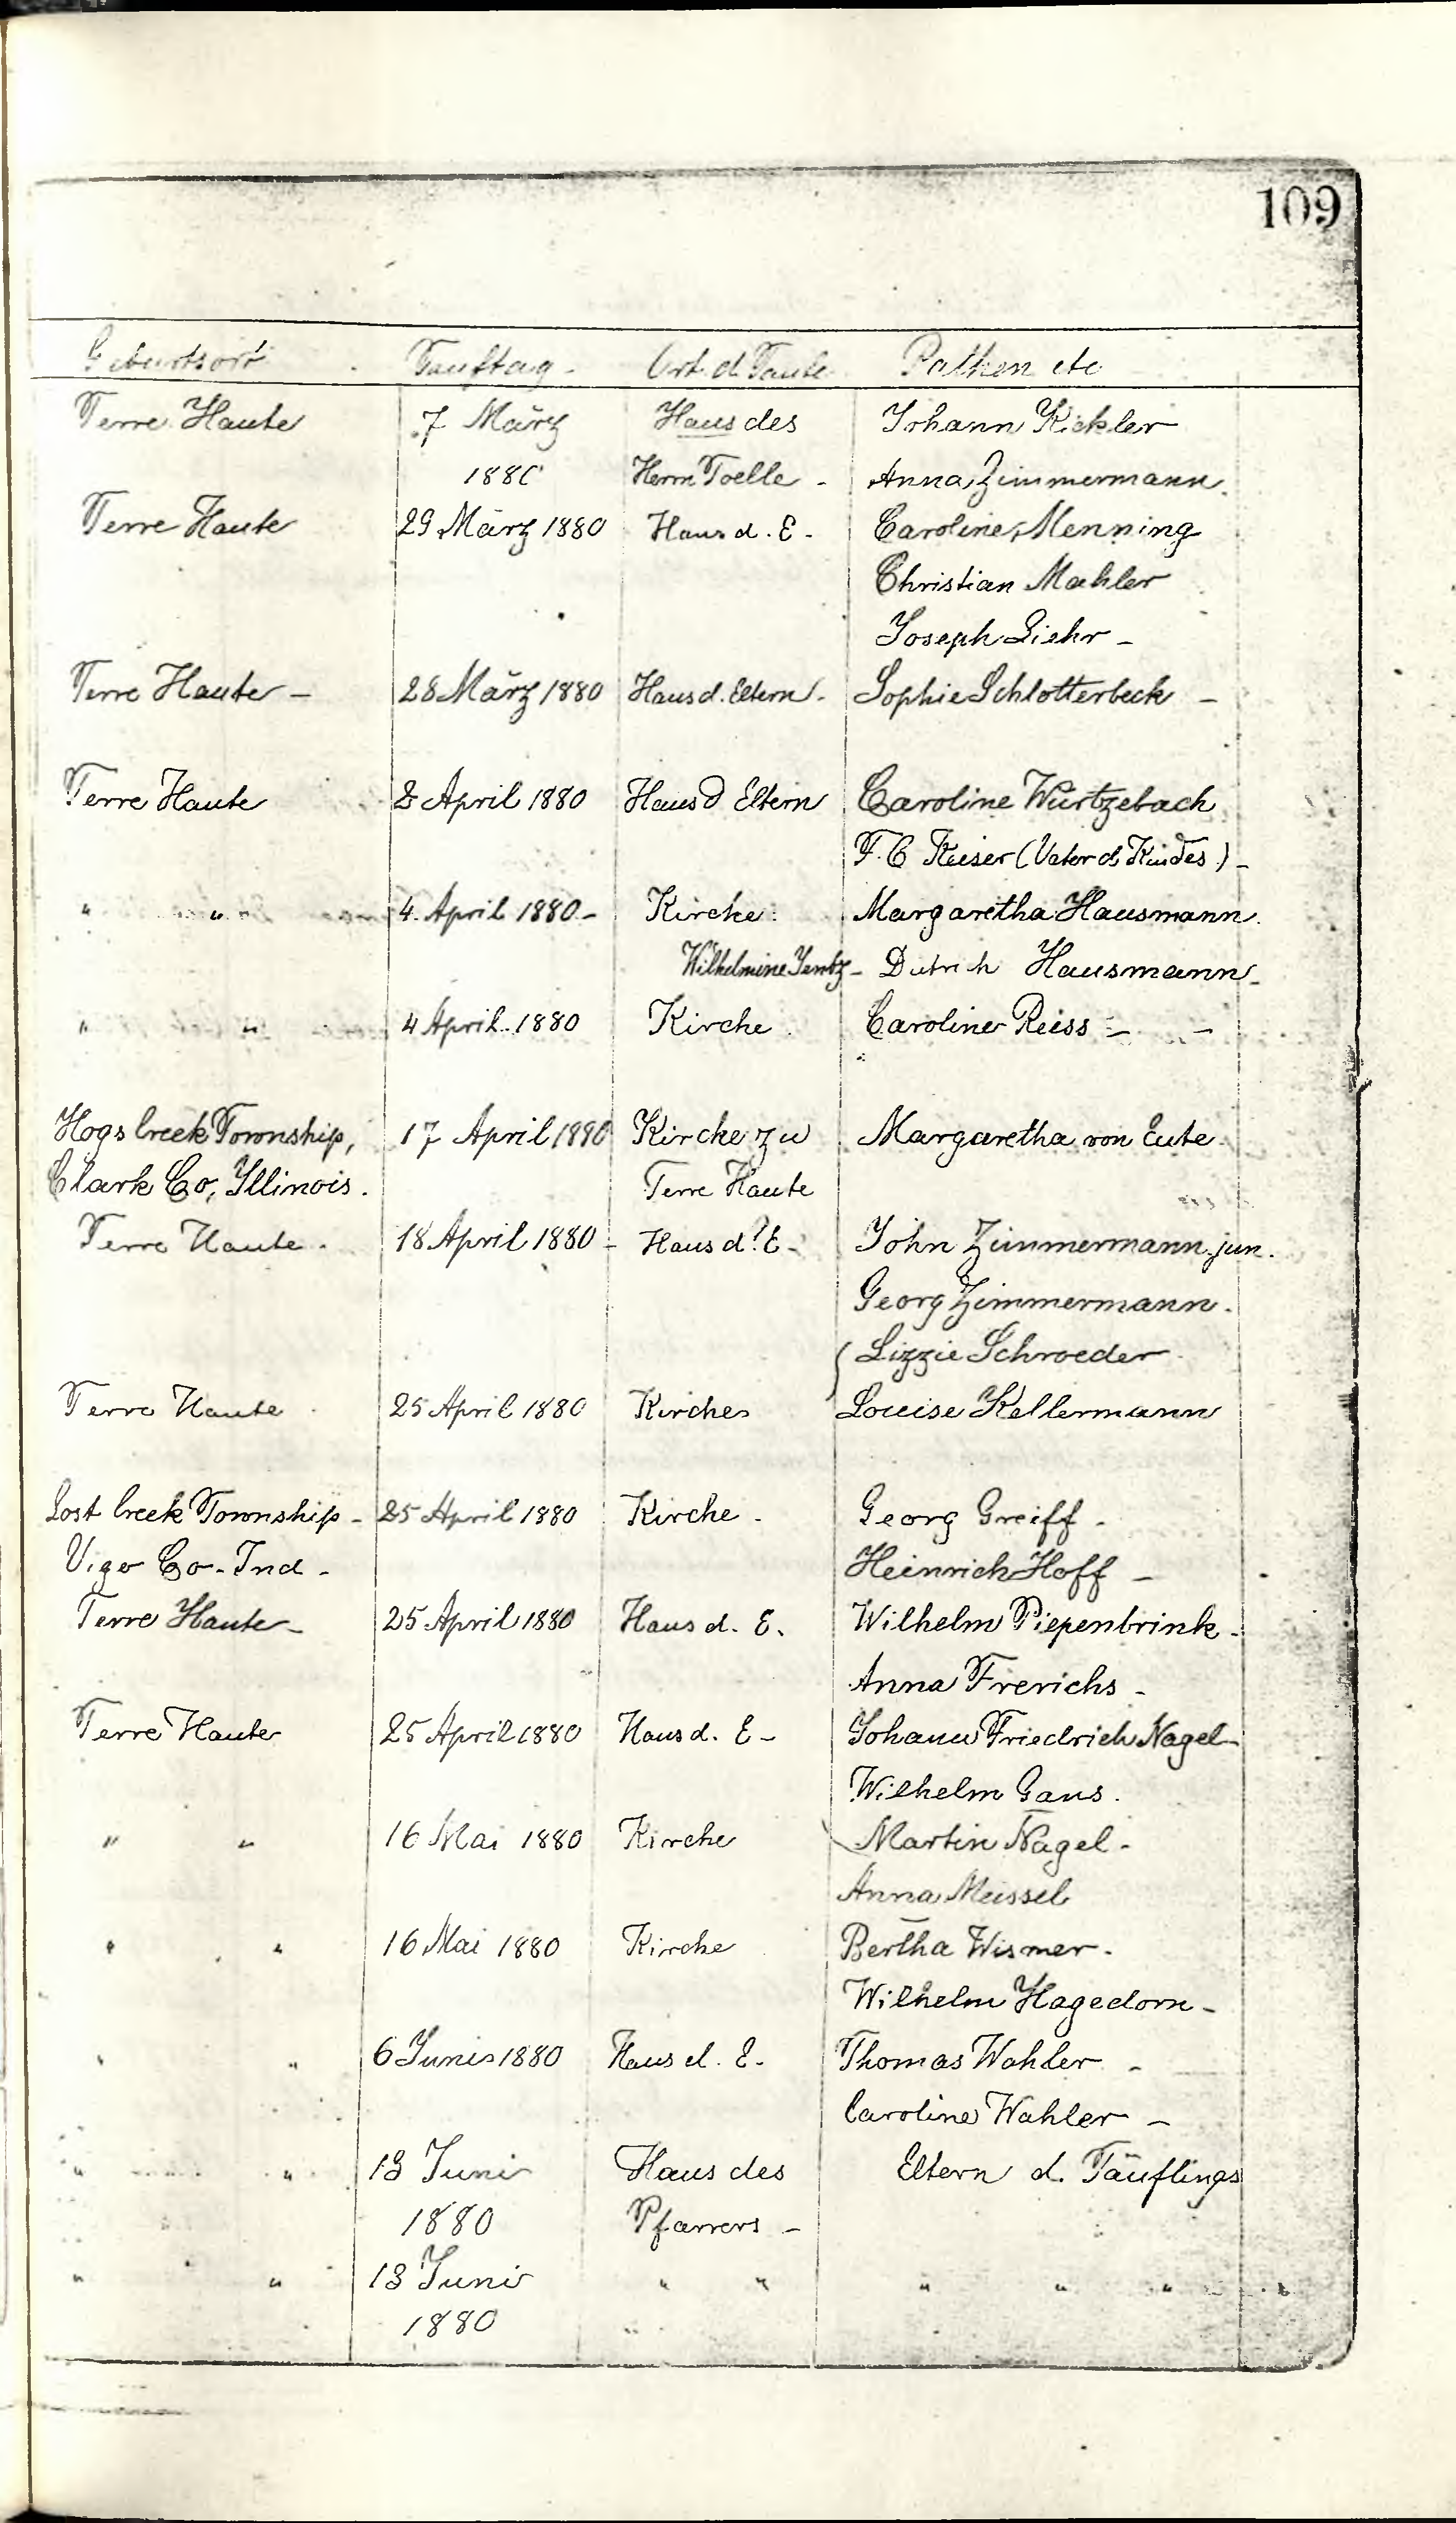 109
Geburtsort Tauftag Ort d Taufe Pathen etc
Terre Haute 7 März Haus des Johann Kickler
1880 Herrn Toelle - Anna Zimmermann
Terre Haute 29 März 1880 Haus d. E. - Caroline Menning
Christian Mahler
Joseph Liehr -
Terre Haute - 28 März 1880 Haus d. Eltern - Sophie Schlotterbeck -
Terre Haute 8 April 1880 Haus d Eltern Caroline Würtzebach
F. C Reiser (Vater d. Kindes) -
" " 4. April 1880 - Kirche Margaretha Hausmann
Wilhelmine Jentz - Dietrich Hausmann -
" " 4 April 1880 Kirche Caroline Reiss -
Hogs Creek Township, 17 April 1880 Kirche zu Margaretha von Eute
Clark Co, Illinois. Terre Haute
Terre Haute. 18 April 1880 - Haus d. E - John Zimmermann jun.
Georg Zimmermann.
Lizzie Schroeder
Terre Haute 25 April 1880 Kirche Louise Kellermann
Lost Creek Township - 25 April 1880 Kirche - Georg Greiff -
Vigo Co - Ind - Heinrich Hoff -
Terre Haute - 25 April 1880 Haus d. E. Wilhelm Piepenbrink -
Anna Frerichs -
Terre Haute 25 April 1880 Haus d. E - Johann Friedrich Nagel -
Wilhelm Gans.
" " 16 Mai 1880 Kirche Martin Nagel -
Anna Meissel
" " 16 Mai 1880 Kirche Bertha Wismer -
Wilhelm Hagedorn -
" " 6 Juni 1880 Haus d. E - Thomas Wahler -
Caroline Wahler -
" " 13 Juni Haus des Eltern d. Täuflings
1880 Pfarrers -
" " 13 Juni " " " " "
1880